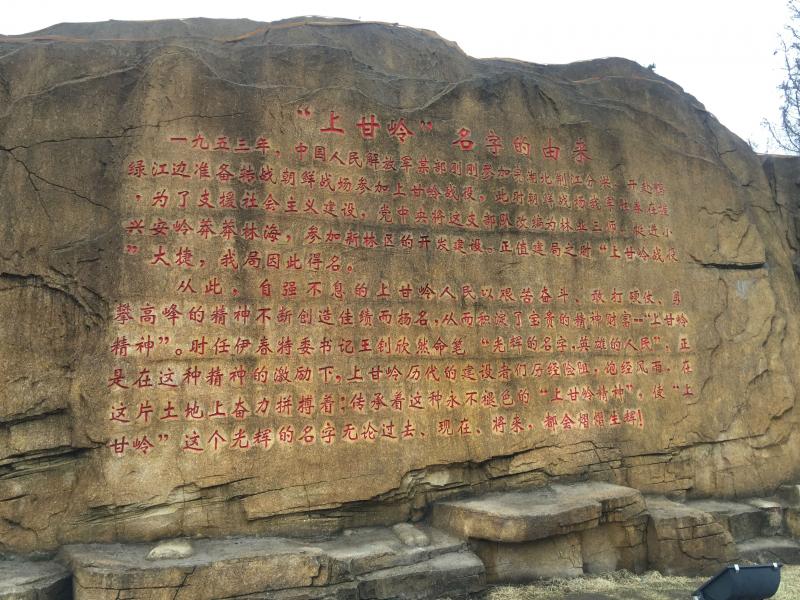 “上甘岭”名字的由来
一九五三年，中国人民解放军某部刚刚参加完湖北荆江分洪，开赴鸭
绿江边准备结战朝鲜战场参加上甘岭战役，此时朝鲜战场我军胜券在握
，为了支援社会主义建设，党中央将这支部队改编为林业三师，挺进小
兴安岭莽莽林海，参加新林区的开发建设。正值建局之时“上甘岭战役
”大捷，我局因此得名。
从此，自强不息的上甘岭人民以艰苦奋斗、敢打硬仗、勇
攀高峰的精神不断创造佳绩而扬名，从而积淀了宝贵的精神财富--“上甘岭
精神”。时任伊春特委书记王钊欣然命笔“光辉的名字，英雄的人民”，正
是在这种精神的激励下，上甘岭历代的建设者们历经险阻，饱经风雨，在
这片土地上奋力拼搏着；传承着这种永不褪色的“上甘岭精神”，使“上
甘岭”这个光辉的名字无论过去、现在、将来，都会熠熠生辉！